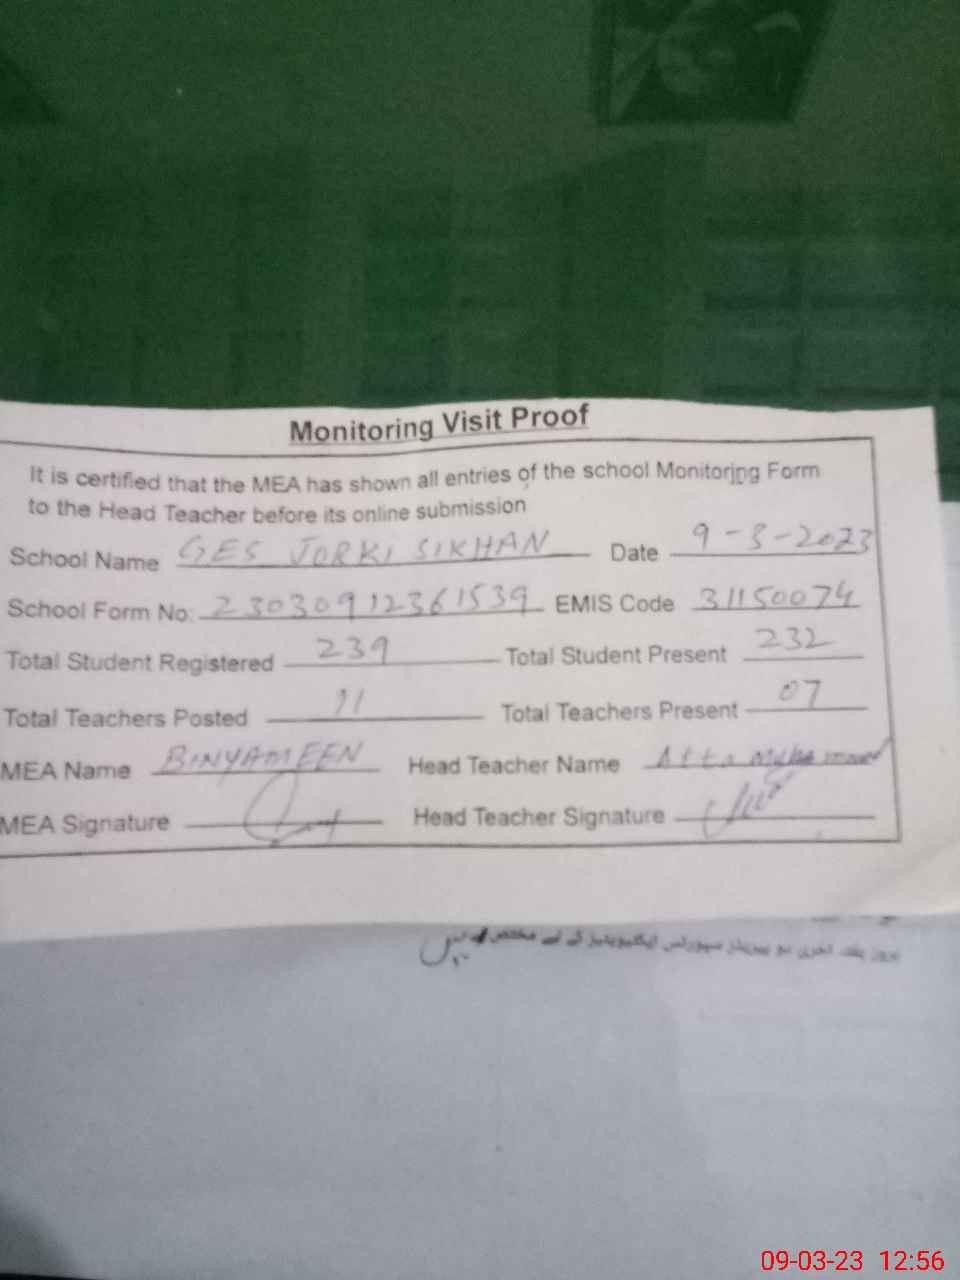 Monitoring Visit Proof
It is certified that the MEA has shown all entries of the school Monitoring Form
to the Head Teacher before its online submission
School Name GES JORKI SIKHAN Date 9-3-2023
School Form No: 23030912361539 EMIS Code 31150074
Total Student Registered 239 Total Student Present 232
Total Teachers Posted 11 Total Teachers Present 07
MEA Name BINYAMEEN Head Teacher Name Atta Muhammad
MEA Signature Head Teacher Signature
سپورٹس ایکٹیویٹیز کے لیے مختص ہیں
09-03-23 12:56